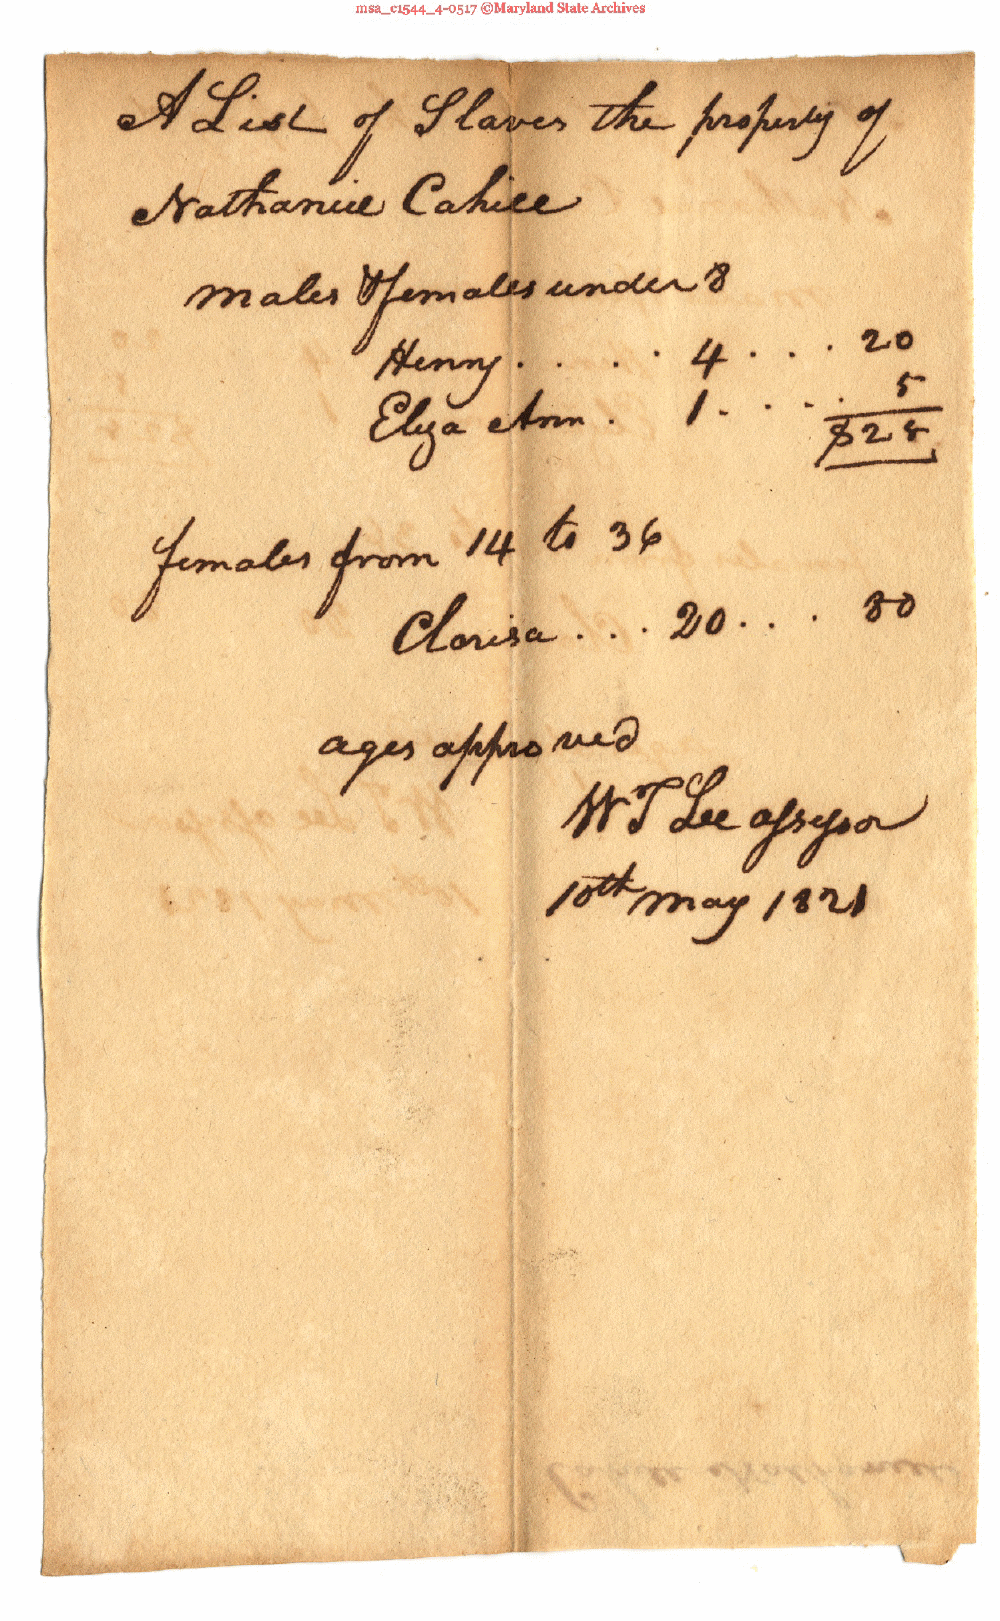 msa_c1544_4-0517 ©Maryland State Archives
A List of Slaves the property of
Nathaniel Cahill
males & females under 8
Henny . . . . . 4 . . . . 20
Eliza Ann . 1 . . . . 5
$25
females from 14 to 36
Clarisa . . . 20 . . . 80
ages approved
W T Lee assessor
10th May 1821